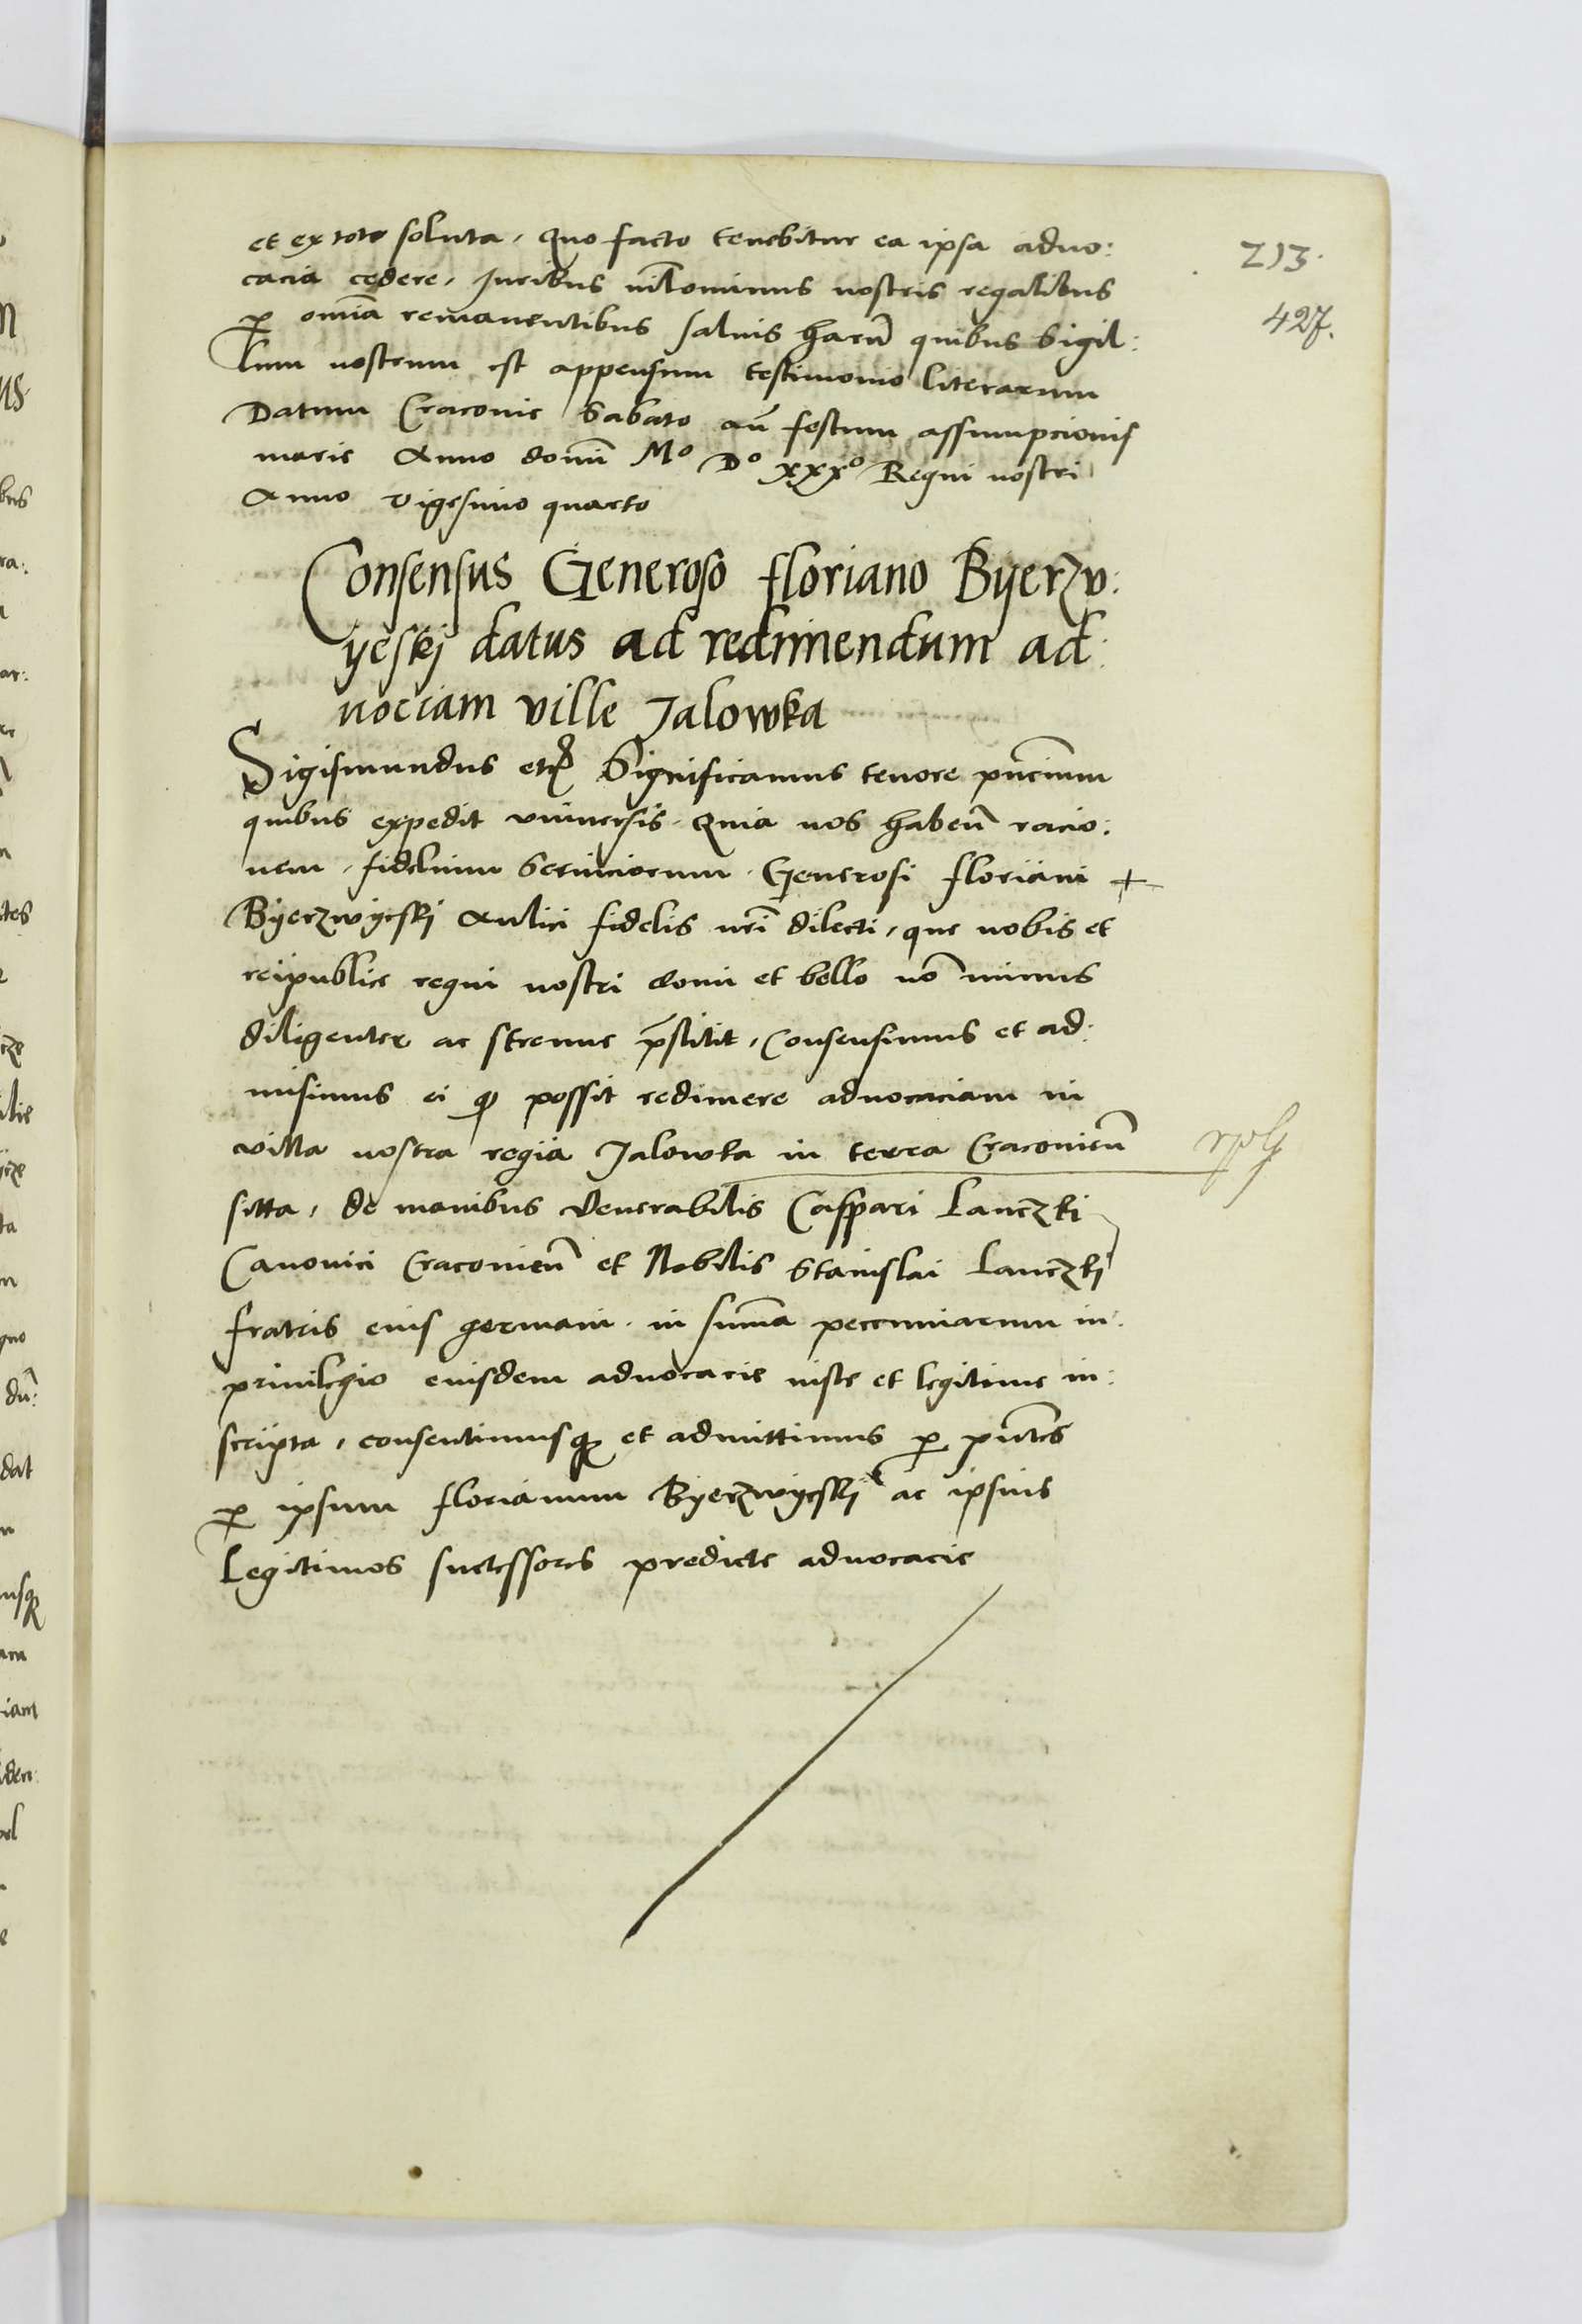 213.
427.
et ex toto soluta, Quo facto tenebitur ea ipsa aduo:
cacia cedere, Juribus nilominus nostris regalibus
p omia remanentibus saluis haru quibus Sigil:
lum nostrum est appensum testimonio literarum
Datum Cracouie Sabato an festum assumpcionis
marie Anno domi Mo Do xxxo Regni nostri
Anno vigesimo quarto
Consensus Generoso floriano Byerzv:
yeskj datus ad redimendum ad:
uociam ville Jalowka
Sigismundus etc Significamus tenore pncium
quibus expedit vniuersis. Quia nos haben racio:
nem, fidelium Seruiciorum Generosi floriani +
Byerzwyeskj Aulici fidelis nri dilecti, que nobis et
reipublice regni nostri domi et bello no minus
diligenter ac strenue pstitit, Consensimus et ad:
misimus ei q possit redimere aduocaciam in
villa nostra regia Jalowka in terra Cracouien
sitta, de manibus Venerabilis Caspari Lanczki
Canonici Cracouien et Nobilis Stanislai Lanczkj
fratris eius germani in suma pecuniarum in:
priuilegio eiusdem aduocacie iuste et legitime in:
scripta, consentimusq et admittimus p pntes
p ipsum florianum Byerzwyeskj ac ipsius
Legitimos successores predicte aduocacie